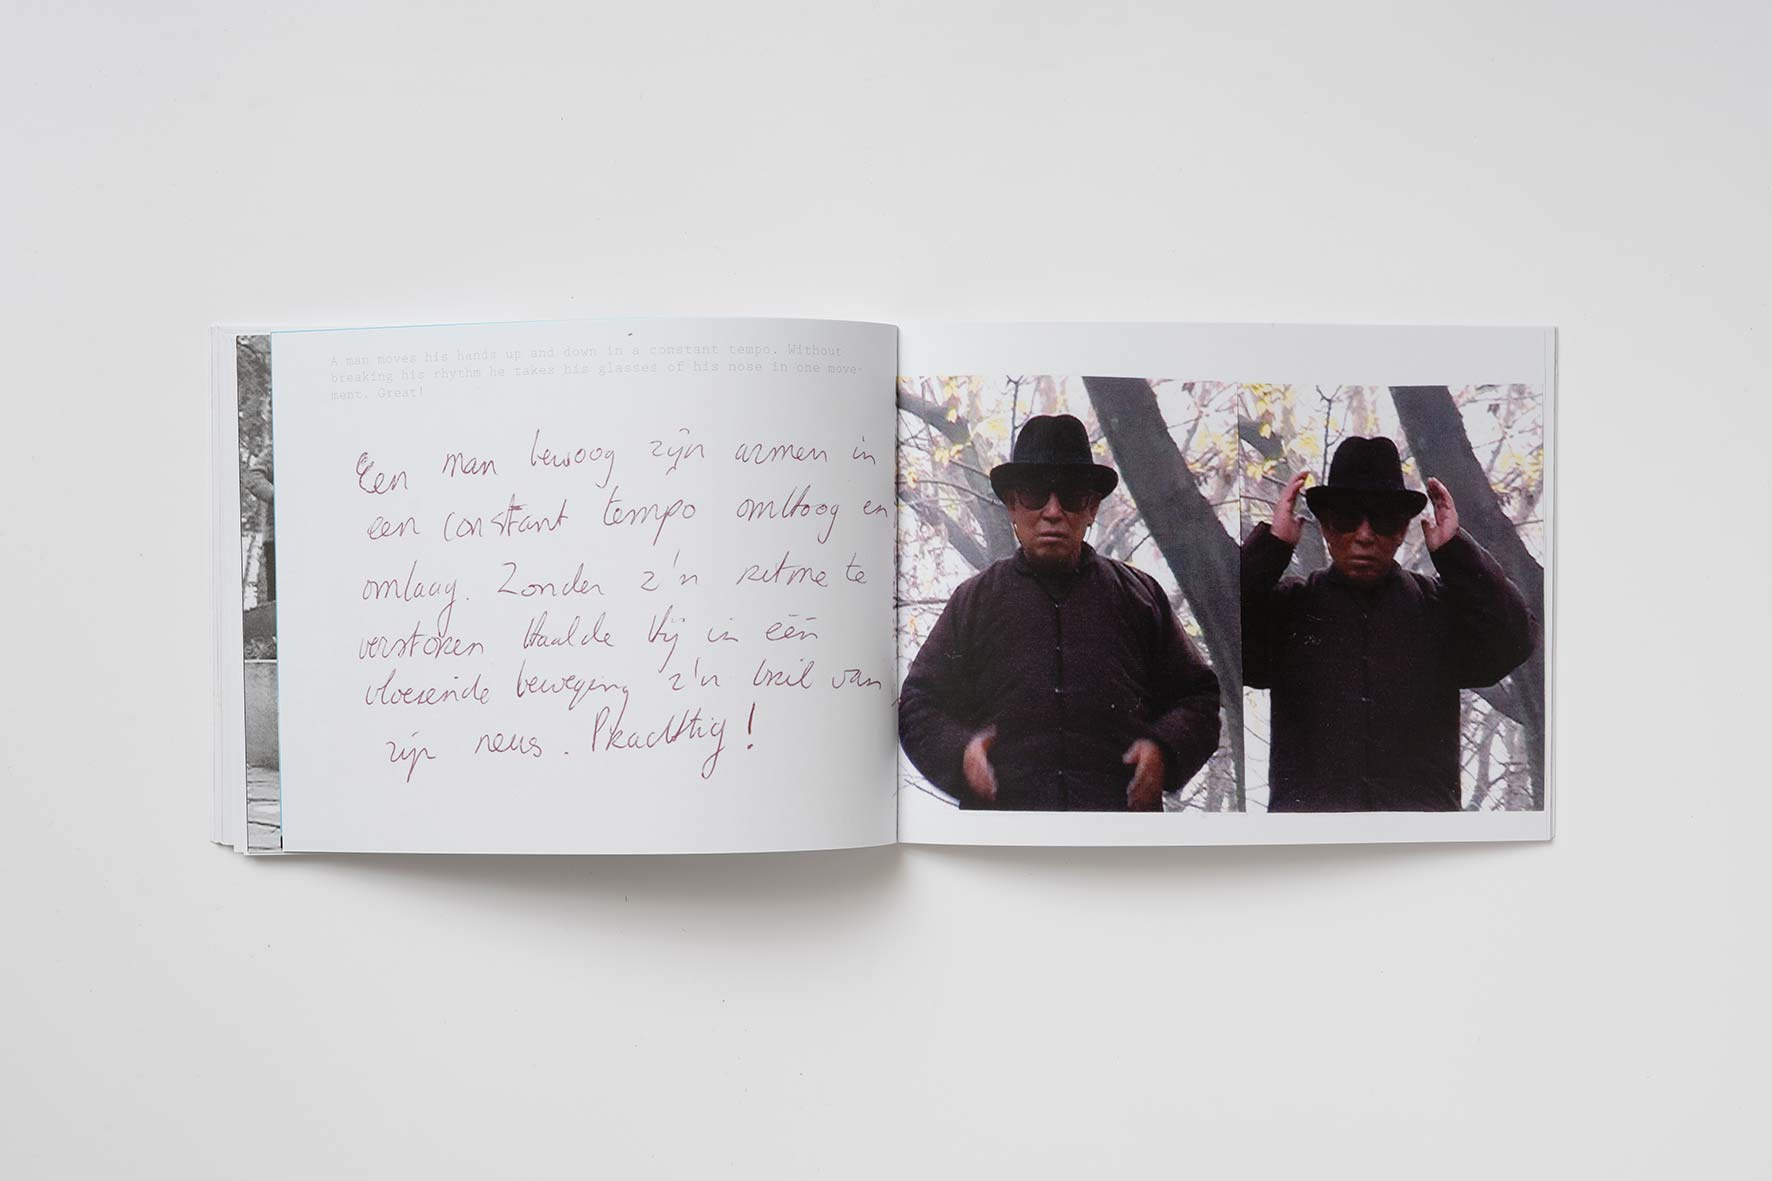 A man moves his hands up and down in a constant tempo. Without
breaking his rhythm he takes his glasses of his nose in one move-
ment. Great!
Een man bewoog zijn armen in
een constant tempo omhoog en
omlaag. Zonder z'n ritme te
verstoren haalde hij in één
vloeiende beweging z'n bril van
zijn neus. Prachtig!